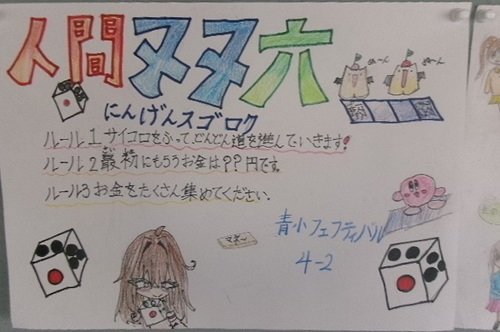 人間ヌヌ六
にんげんスゴロク
ルール1 サイコロをふって、どんどん道を進んでいきます!
ルール2 最初にもらうお金は??円です。
ルール3 お金をたくさん集めてください。
マネー
青小フェフティバル
4-2